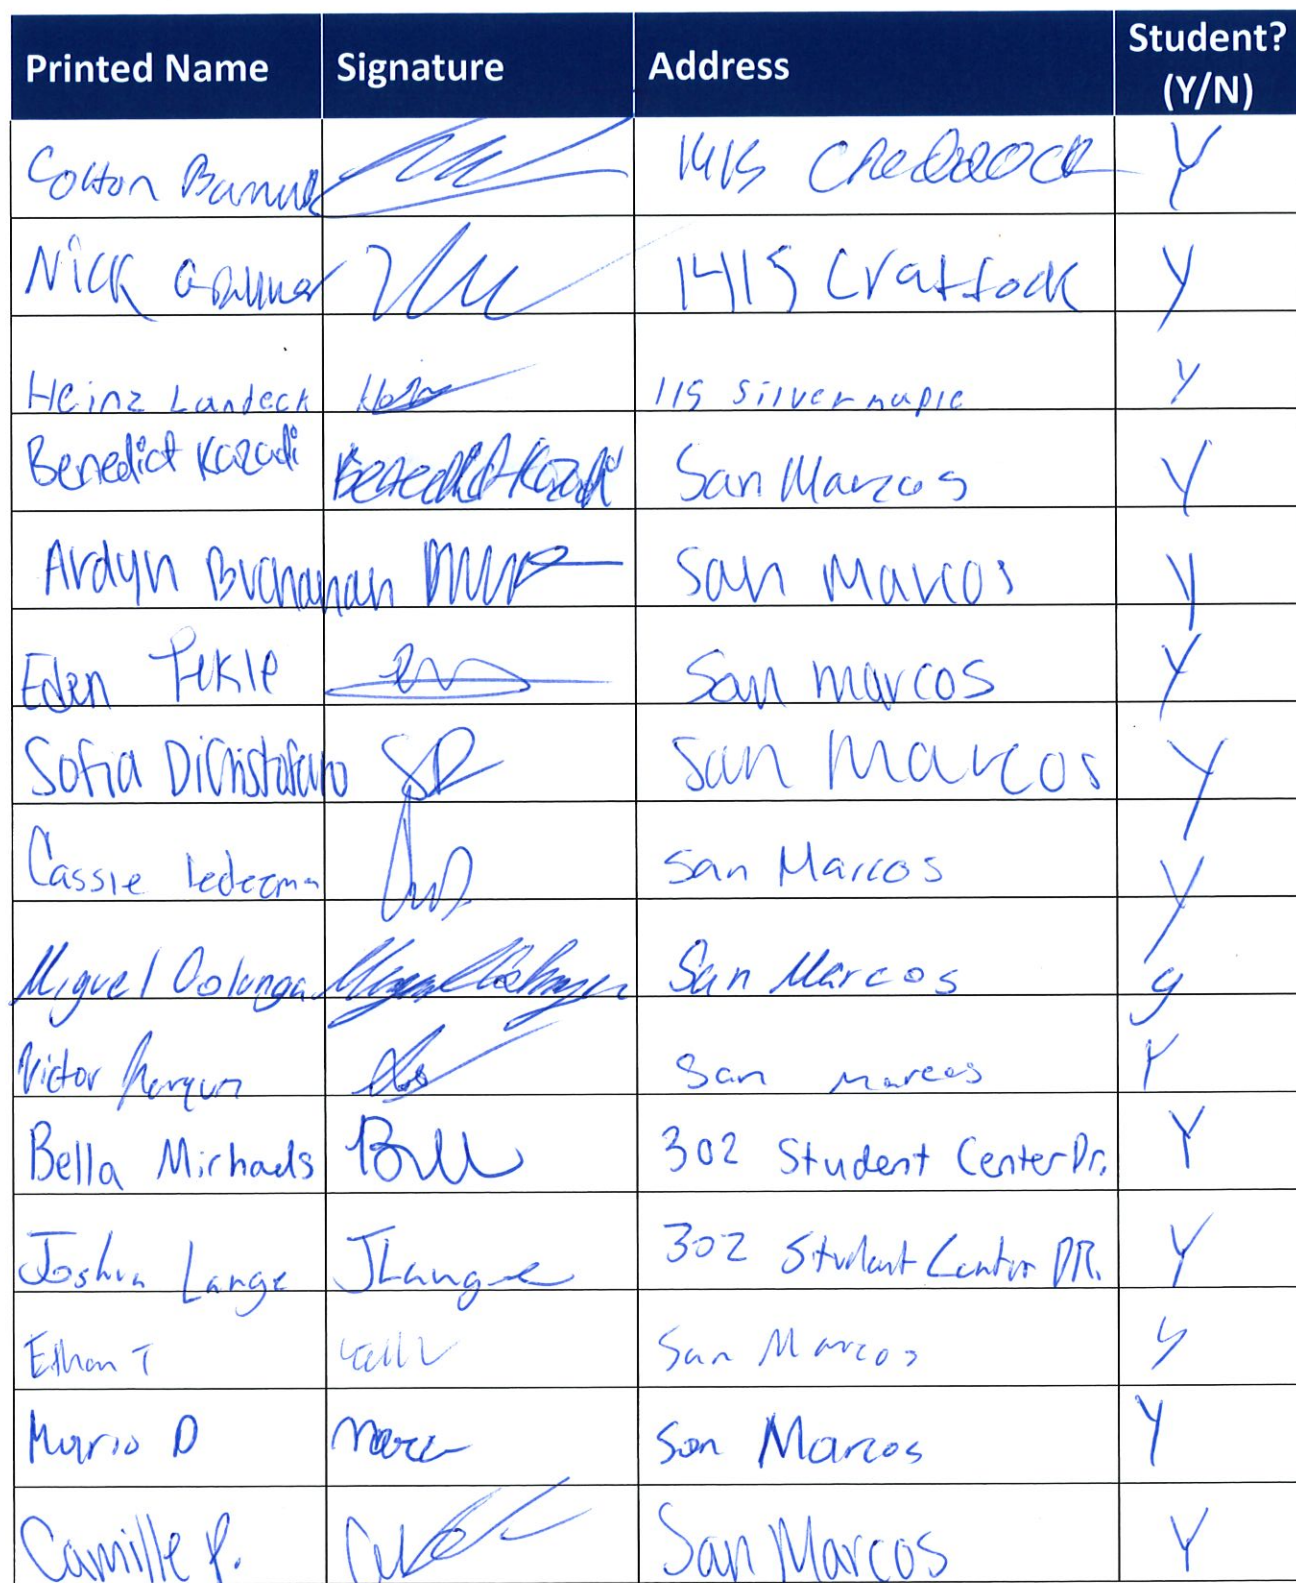 Printed Name Signature Address Student? (Y/N)
Colton 1415 Y
Nick 1415 Craffock Y
Heinz Landeck 115 Silver maple Y
Benedict Kazadi Benedict Kazadi San Marcos Y
Ardyn Buchanan San Marcos y
Eden Tekle San marcos Y
Sofia DiCristofaro SD San Marcos Y
Cassie San Marcos Y
Miguel San Marcos y
Victor San Marcos Y
Bella Michaels Bell 302 Student Center Dr. Y
Joshua Lange JLange 302 Student Center DR. Y
Ethan T San Marcos y
Mario D San Marcos Y
Camille P. San Marcos Y